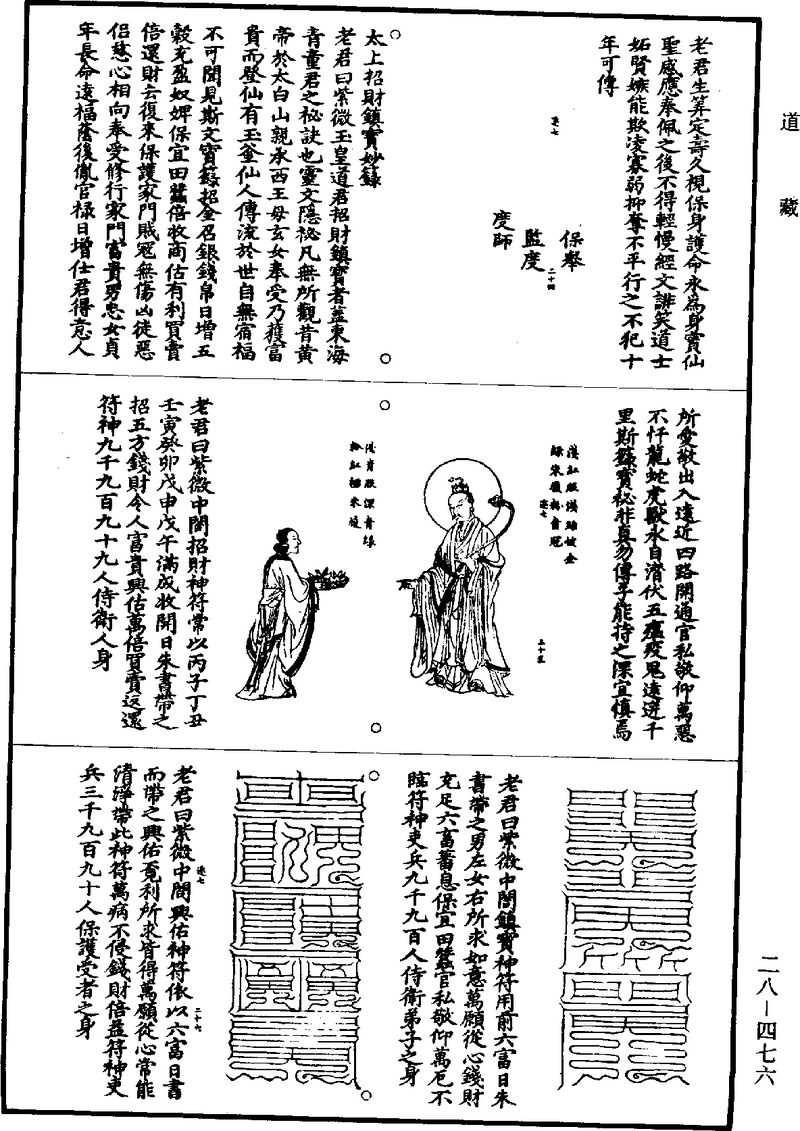 道藏
老君生筭定壽久視保身護命永為身寶仙
聖感應奉佩之後不得輕慢經文誹笑道士
妬賢嫉能欺凌寡弱抑奪不平行之不犯十
年可傳
保舉
監度
度師
二十四
太上招財鎮寶妙籙
老君曰紫微玉皇道君招財鎮寶者蓋東海
青童君之祕訣也靈文隱祕凡無所觀昔黃
帝於太白山親承西王母玄女奉受乃獲富
貴而登仙有玉釜仙人傳流於世自無宿福
不可聞見斯文寶籙招金召銀錢帛日增五
穀充盈奴婢保宜田蠶倍收商估有利買賣
倍還財去復來保護家門賊寇無傷凶徒惡
侶慈心相向奉受修行家門富貴男忠女貞
年長命遠福蔭後胤官祿日增仕君得意人
所愛敬出入遠近四路開通官私敬仰萬惡
不忓龍蛇虎獸永自潛伏五瘟疫鬼遠迸千
里斯籙寶祕非真勿傳子能持之深宜慎焉
二十五
老君曰紫微中閤招財神符常以丙子丁丑
壬寅癸卯戊申戊午滿成收開日朱書帶之
招五方錢財令人富貴興估萬倍買賣返還
符神九千九百九十九人侍衛人身
老君曰紫微中閤鎮寶神符用前六富日朱
書帶之男左女右所求如意萬願從心錢財
充足六畜蕃息保宜田蠶官私敬仰萬厄不
臨符神吏兵九千九百人侍衛弟子之身
老君曰紫微中閤興佑神符依以六富日書
而帶之興佑覓利所求皆得萬願從心常能
清淨帶此神符萬病不侵錢財倍益符神吏
兵三千九百九十人保護受者之身
二十六
二八—四七六